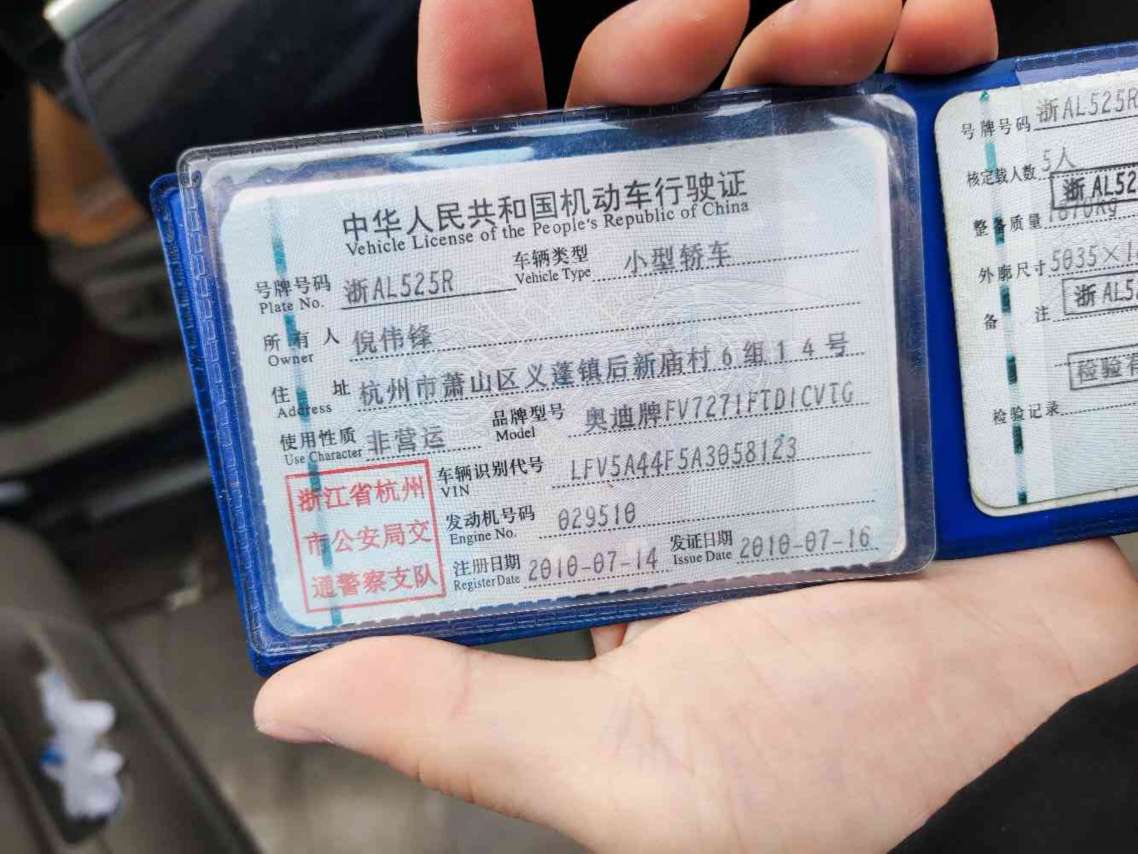 中华人民共和国机动车行驶证
Vehicle License of the People's Republic of China
号牌号码 浙AL525R 车辆类型 小型轿车
Plate No. Vehicle Type
所有人 倪伟锋
Owner
住址 杭州市萧山区义蓬镇后新庙村6组14号
Address
使用性质 非营运 品牌型号 奥迪牌FV7271FTDICVTG
Use Character Model
车辆识别代号 LFV5A44F5A3058123
VIN
发动机号码 029510
Engine No.
注册日期 2010-07-14 发证日期 2010-07-16
Register Date Issue Date
浙江省杭州
市公安局交
通警察支队
号牌号码 浙AL525R
核定载人数 5人
浙AL52
整备质量
外廓尺寸 5035×1
浙AL5
备注
检验有
检验记录